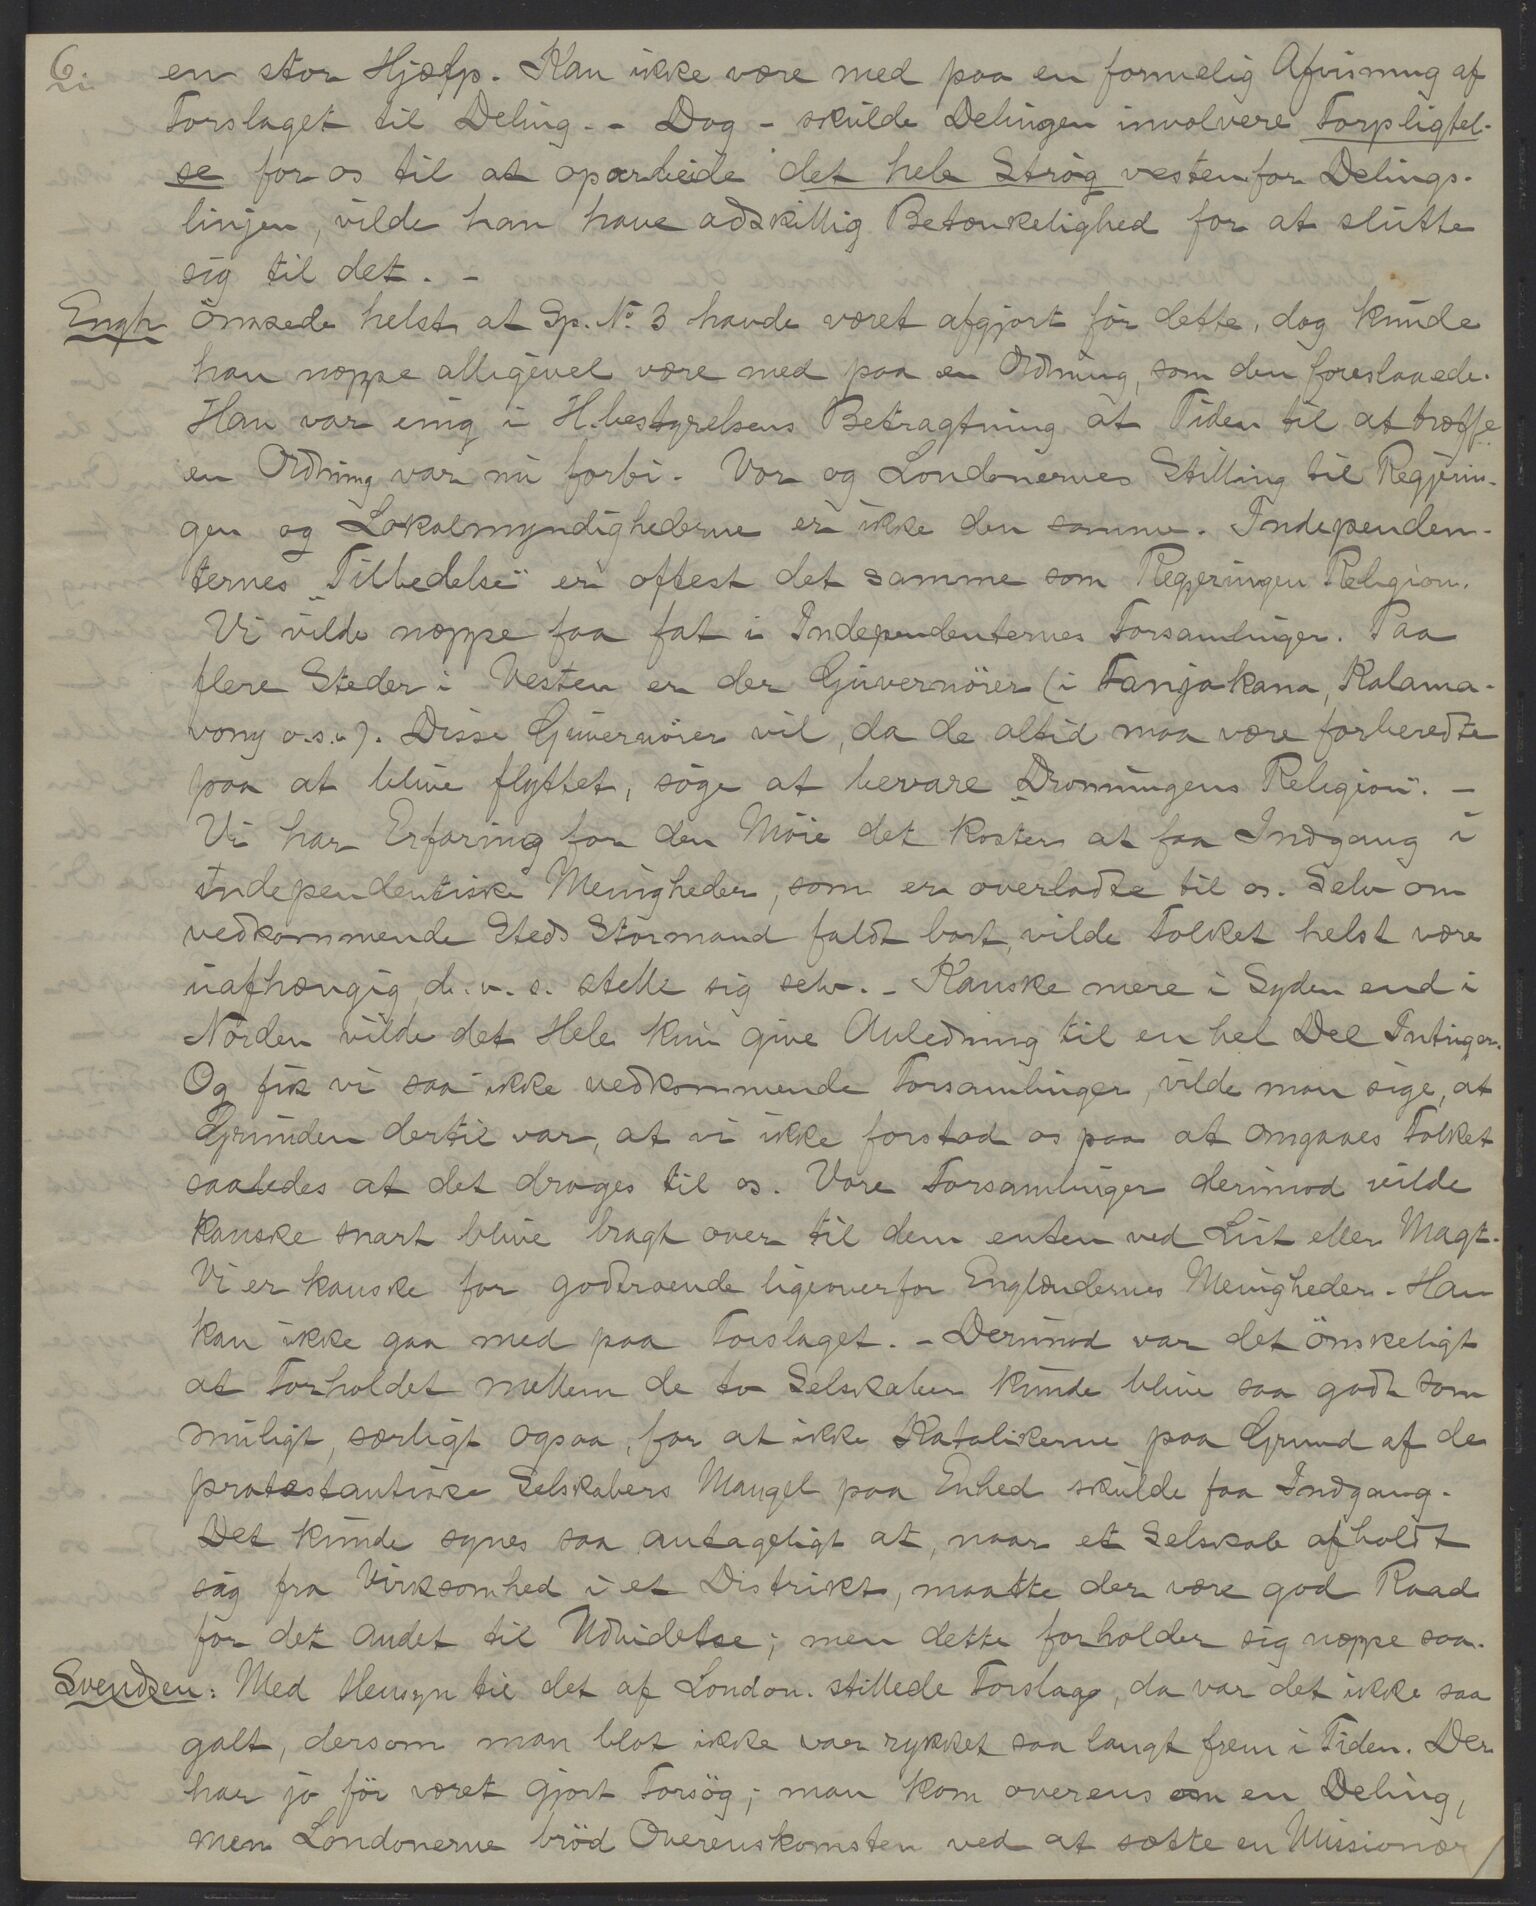 6.
en stor Hjælp. Kan ikke være med paa en formelig Afvisning af
Forslaget til Deling. - Dog - skulde Delingen involvere Forpligtel-
se for os til at oparbeide det hele Strøg vestenfor Delings-
linjen, vilde han have adskillig Betænkelighed for at slutte
sig til det. -
Engh önskede helst at Sp. No 3 havde været afgjort för dette, dog kunde
han neppe alligevel være med paa en Ordning, som den foreslaaede.
Han var enig i H.bestyrelsens Betragtning at Tiden til at træffe
en Ordning var nu forbi. Vor og Londonernes Stilling til Regjerin-
gen og Lokalmyndighederne er ikke den samme. Independen-
ternes "Tilbedelse" er oftest det samme som Regjeringen Religion.
Vi vilde neppe faa fat i Independenternes Forsamlinger. Paa
flere Steder i Vesten er der Guvernörer (i Fanjakana, Kalama-
vony o.s.v). Disse Guvernörer vil, da de altid maa være forberedte
paa at blive flyttet, söge at bevare "Dronningens Religion". -
Vi har Erfaring for den Möie det koster at faa Indgang i
independentiske Menigheder, som er overladte til os. Selv om
vedkommende Steds Stormand faldt bort, vilde Folket helst være
uafhængig, d.v.s. stelle sig selv. - Kanske mere i Syden end i
Norden vilde det Hele kun give Anledning til en hel Del Intriger.
Og fik vi saa ikke vedkommende Forsamlinger, vilde man sige, at
Grunden dertil var, at vi ikke forstod os paa at omgaaes Folket
saaledes at det droges til os. Vore Forsamlinger derimod vilde
kanske snart blive bragt over til dem enten ved List eller Magt.
Vi er kanske for godtroende ligeoverfor Englændernes Menigheder. Han
kan ikke gaa med paa Forslaget. - Derimod var det önskeligt
at Forholdet mellem de to Selskaber kunde blive saa godt som
muligt, særligt ogsaa, for at ikke Katolikerne paa Grund af de
protestantiske Selskabers Mangel paa Enhed skulde faa Indgang.
Det kunde synes saa antageligt at, naar et Selskab afholdt
sig fra Virksomhed i et Distrikt, maatte der være god Raad
for det andet til Udvidelse; men dette forholder sig neppe saa.
Svendsen: Med Hensyn til det af London. stillede Forslag, da var det ikke saa
galt, dersom man blot ikke var rykket saa langt frem i Tiden. Der
har jo för været gjort Forsög; man kom overens om en Deling,
men Londonerne bröd Overenskomsten ved at sætte en Missionær